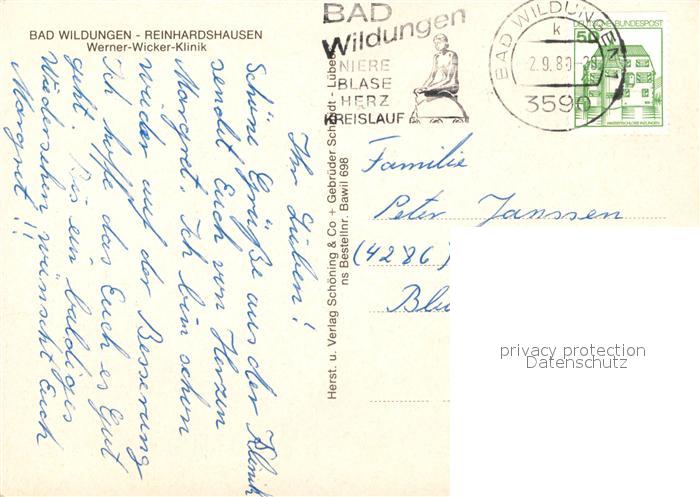 BAD WILDUNGEN - REINHARDSHAUSEN
Werner-Wicker-Klinik
Ihr Lieben!
Schöne Grüße aus der Klinik
sendet Euch von Herzen
Margret. Ich bin schon
wieder auf der Besserung
Ich hoffe das Euch es Gut
geht. Bis ein baldiges
Wiedersehen, wünscht Euch
Margret!!
Herst. u. Verlag Schöning & Co + Gebrüder Schmidt - Lübeck
ns Bestellnr. Bawil 698
BAD
Wildungen
NIERE
BLASE
HERZ
KREISLAUF
BAD WILDUNGEN 1
k
2.9.80
3590
DEUTSCHE BUNDESPOST
50
WASSERSCHLOSS INZLINGEN
Familie
Peter Janssen
(4286)
privacy protection
Datenschutz